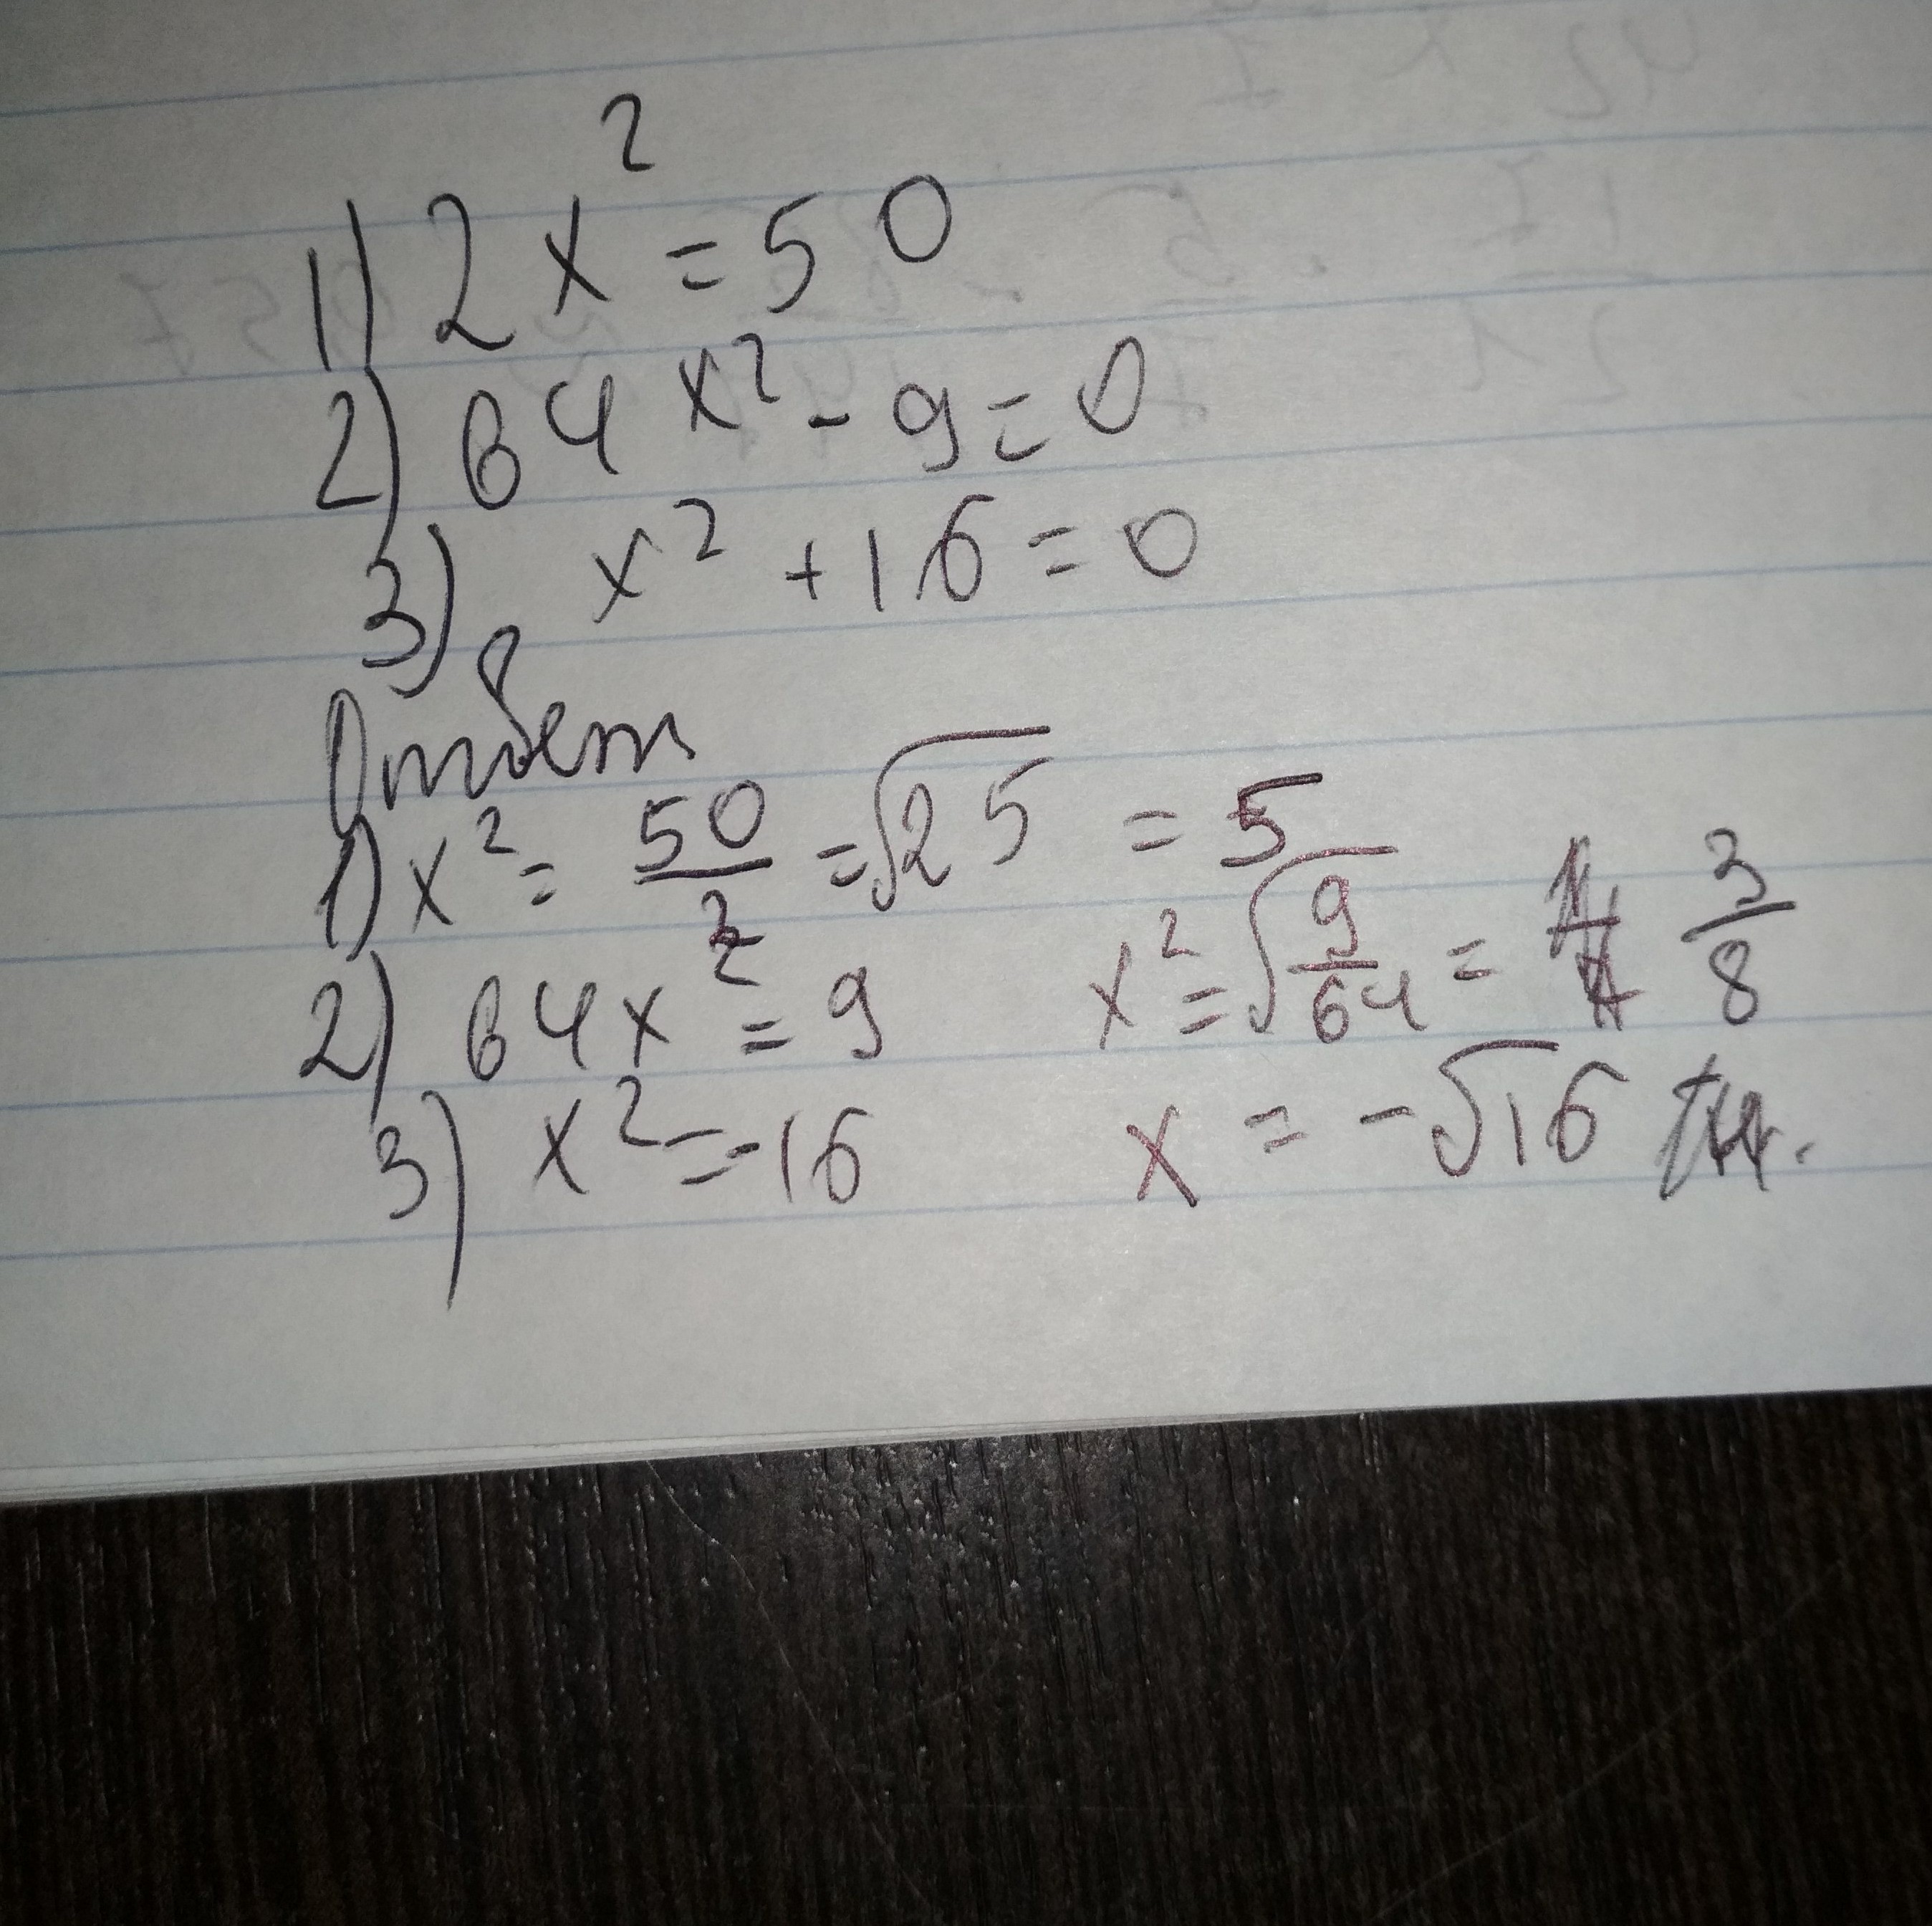 1) 2x² = 50
2) 64x² - 9 = 0
3) x² + 16 = 0
Ответ
1) x² = 50/2 = √25 = 5
2) 64x² = 9 x² = √9/64 = 3/8
3) x² = -16 x = -√16